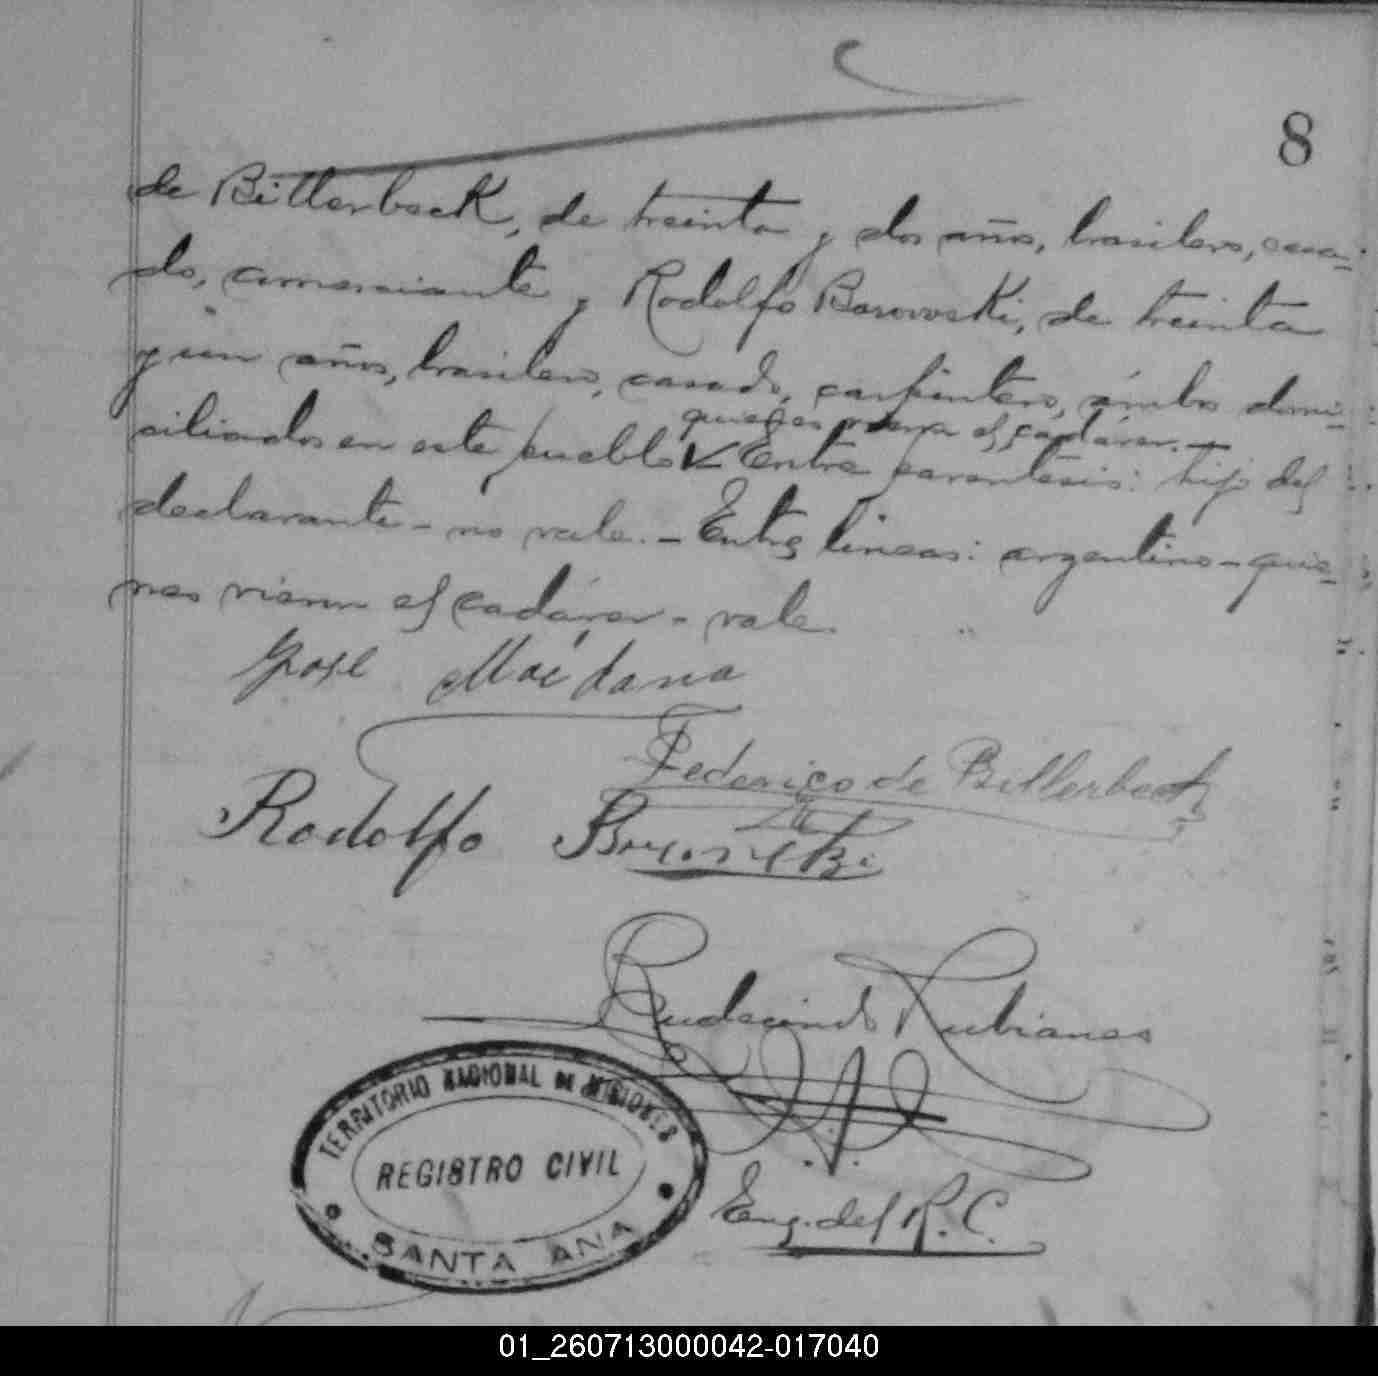 8
de Billerbeck, de treinta y dos años, brasilero, casa-
do, comerciante y Rodolfo Borowski, de treinta
y un años, brasilero, casado, carpintero, ámbos domi-
quienes vieron el cadáver.—
ciliados en este pueblo Entre parentesis: hijo del
declarante - no vale. - Entre lineas: argentino - quie-
nes vieron el cadáver - vale.
José Maidana
Federico de Billerbeck
Rodolfo
Rudecindo Rubianes
TERRITORIO NACIONAL DE MISIONES
REGISTRO CIVIL
SANTA ANA
Enc. del R. C.
01_260713000042-017040